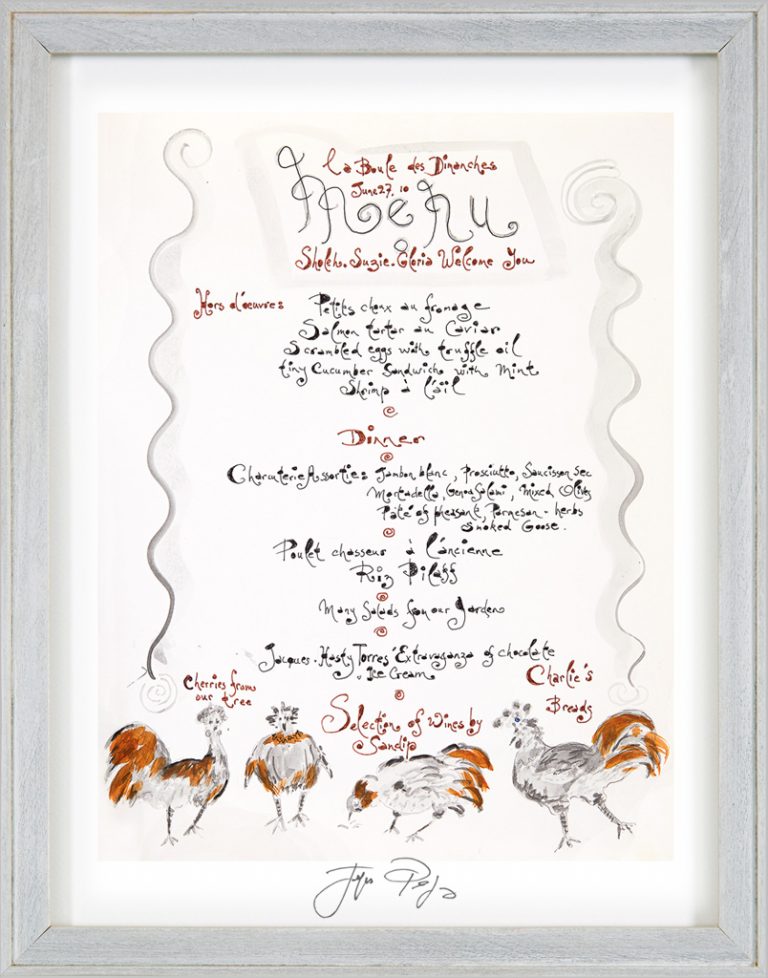 La Boule des Dimanches
June 27. 10
Menu
Sholeh. Suzie. Gloria Welcome You
Hors d'oeuvres
Petits choux au fromage
Salmon tartar au Caviar
Scrambled eggs with truffle oil
tiny Cucumber Sandwich with Mint
Shrimp à l'ail
Dinner
Charcuterie Assorties Jambon blanc, Prosciutto, Saucisson Sec
Mortadella, Genoa Salami, Mixed Olives
Pâté of pheasant, Parmesan - herbs
Smoked Goose.
Poulet chasseur à l'ancienne
Riz Pilaff
Many Salads from our Garden
Jacques. Hasty Torres' Extravaganza of chocolate
. Ice Cream
Cherries from
our tree
Charlie's
Breads
Selection of Wines by
Sandip